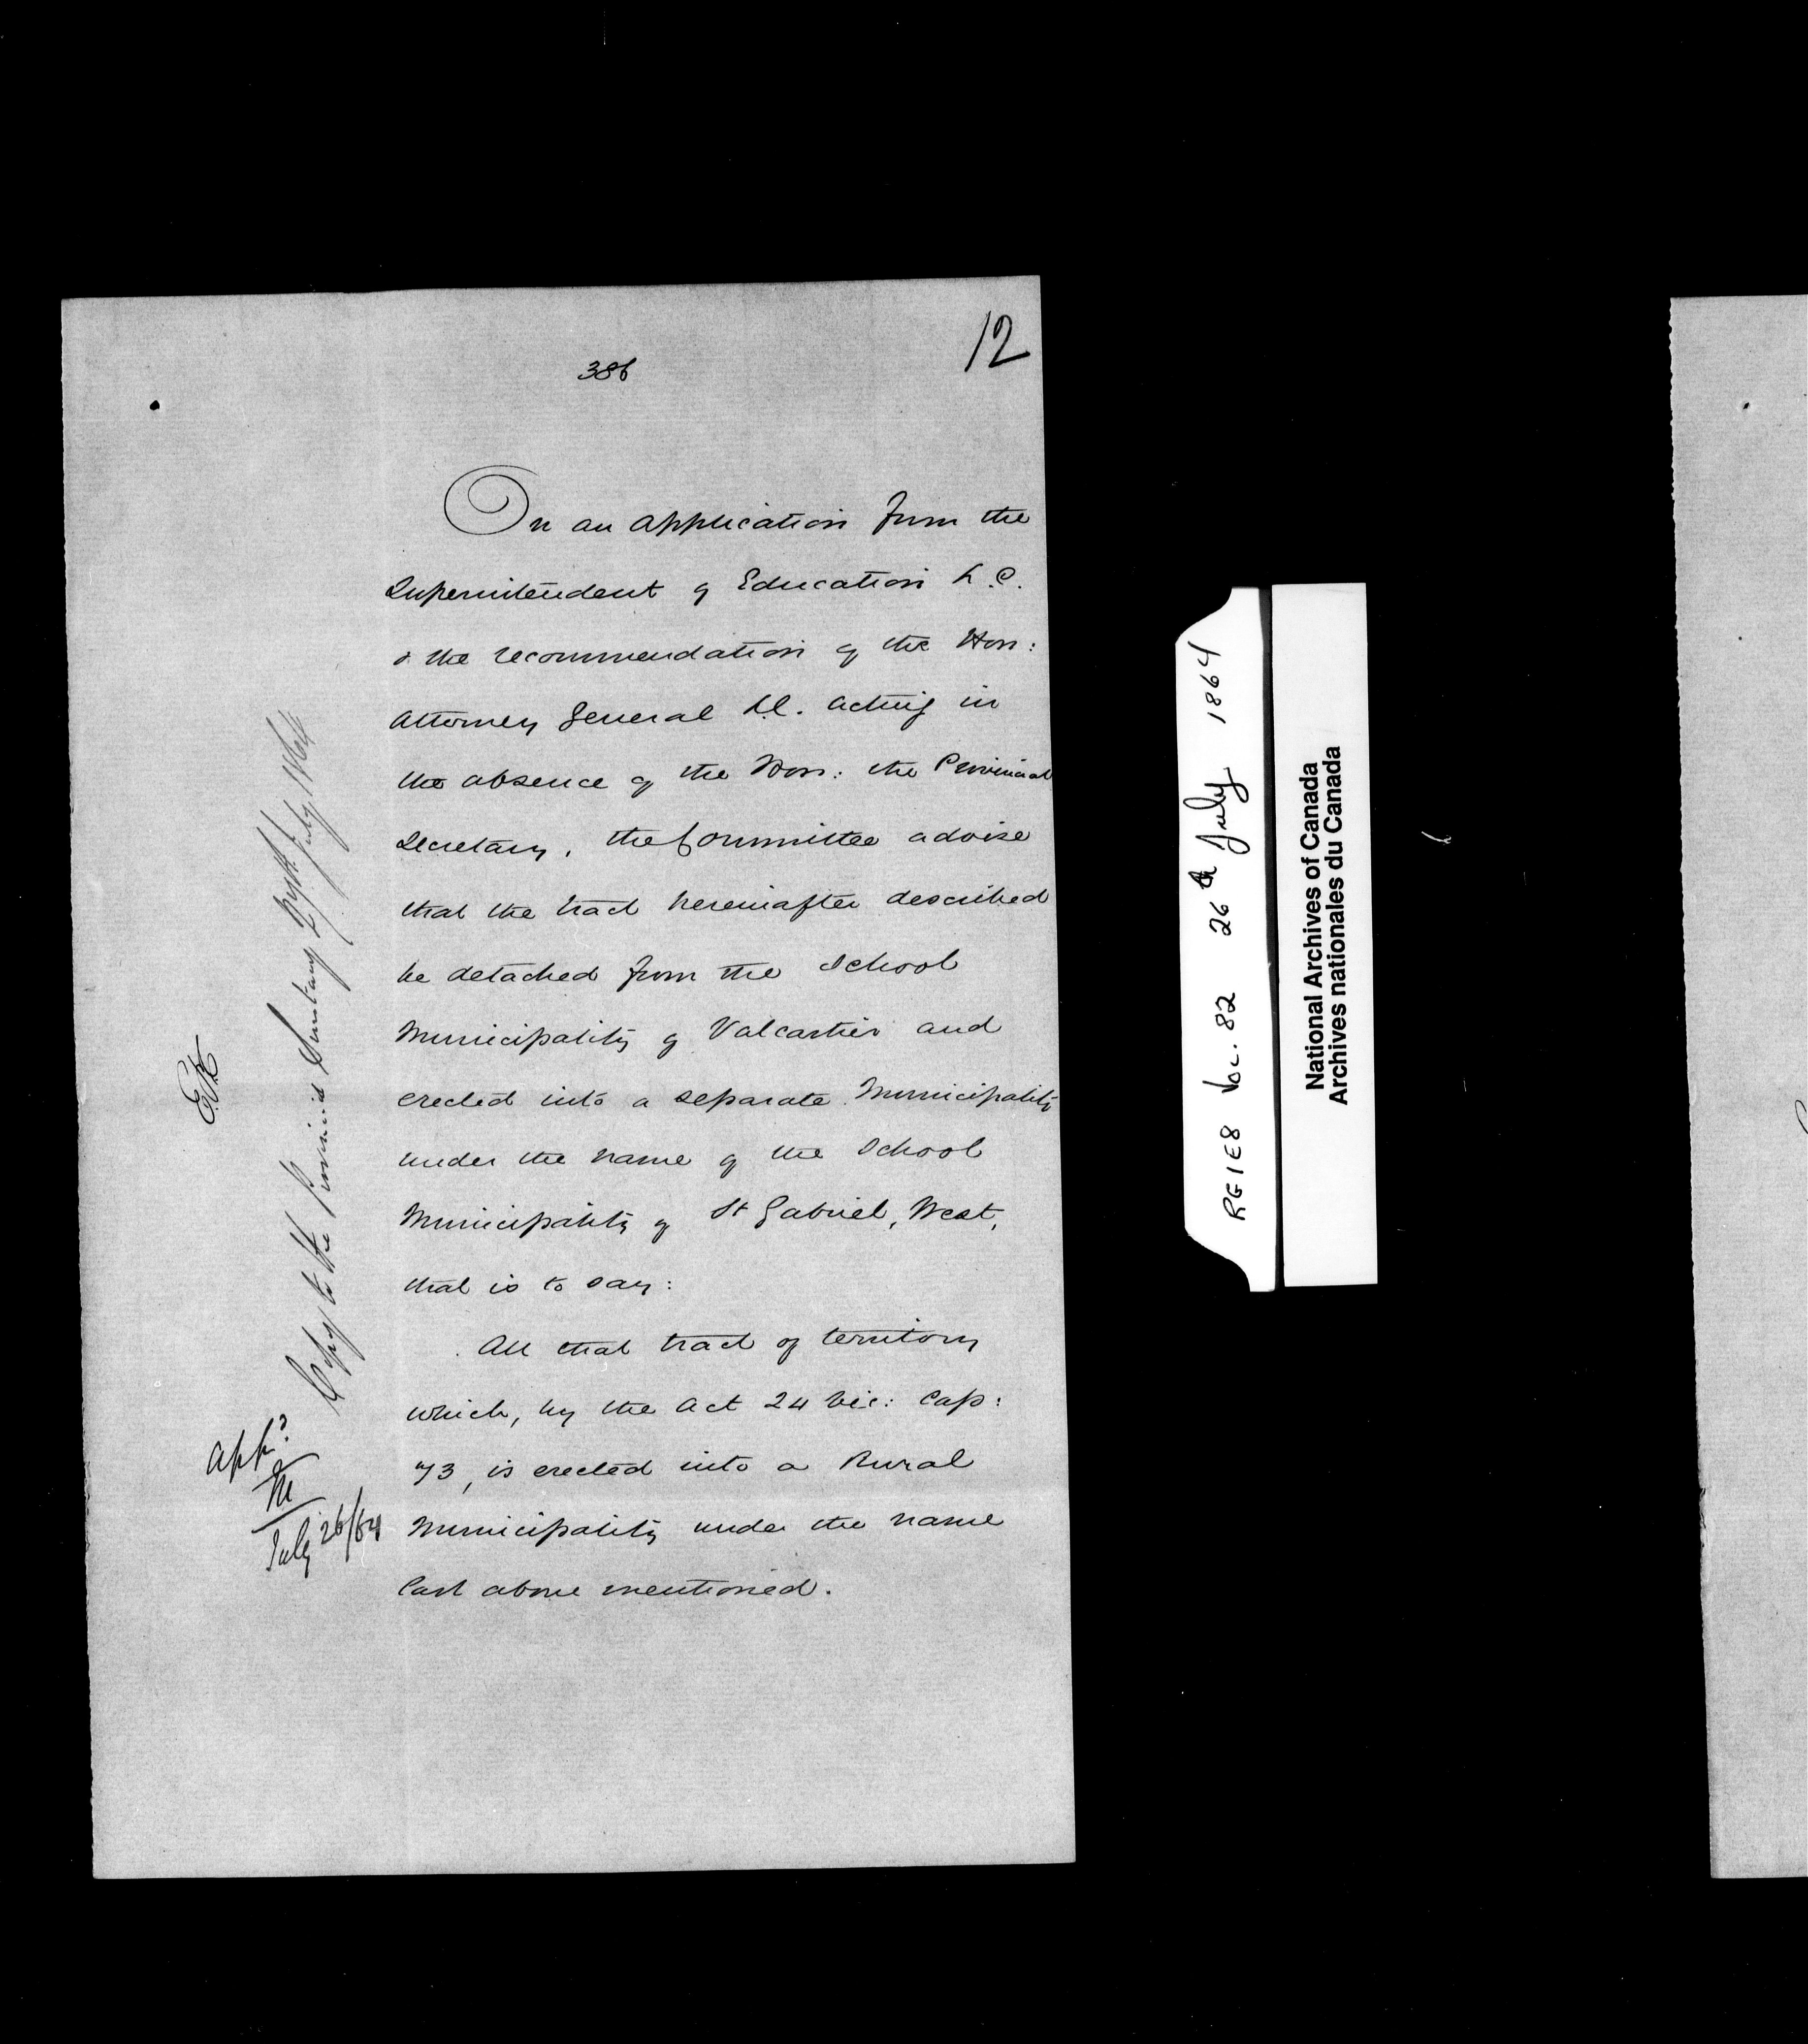 12
386
On an application from the
Superintendent of Education L.C.
& the recommendation of the Hon:
Attorney General L.C. acting in
the absence of the Hon: the Provincial
Secretary, the Committee advise
that the tract hereinafter described
be detached from the School
Municipality of Valcartier and
erected into a separate Municipality
under the name of the School
Municipality of St Gabriel, West,
that is to say:
All that tract of territory
which, by the Act 24 Vic: Cap:
73, is erected into a Rural
Municipality under the name
last above mentioned.
Copy to the Provincial Secretary July 1864
App.d
M
July 26/64
RG1E8 Vol. 82 26th July 1864
National Archives of Canada
Archives nationales du Canada